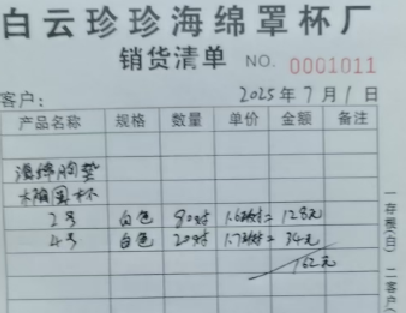 白云珍珍海绵罩杯厂
销货清单 NO. 0001011
客户： 2025年7月1日
产品名称 规格 数量 单价 金额 备注
海绵胸垫
2号 白色 80对 1.6/对= 128元
4号 白色 20对 1.7/对= 34元
162元
一存根(白) 二客户